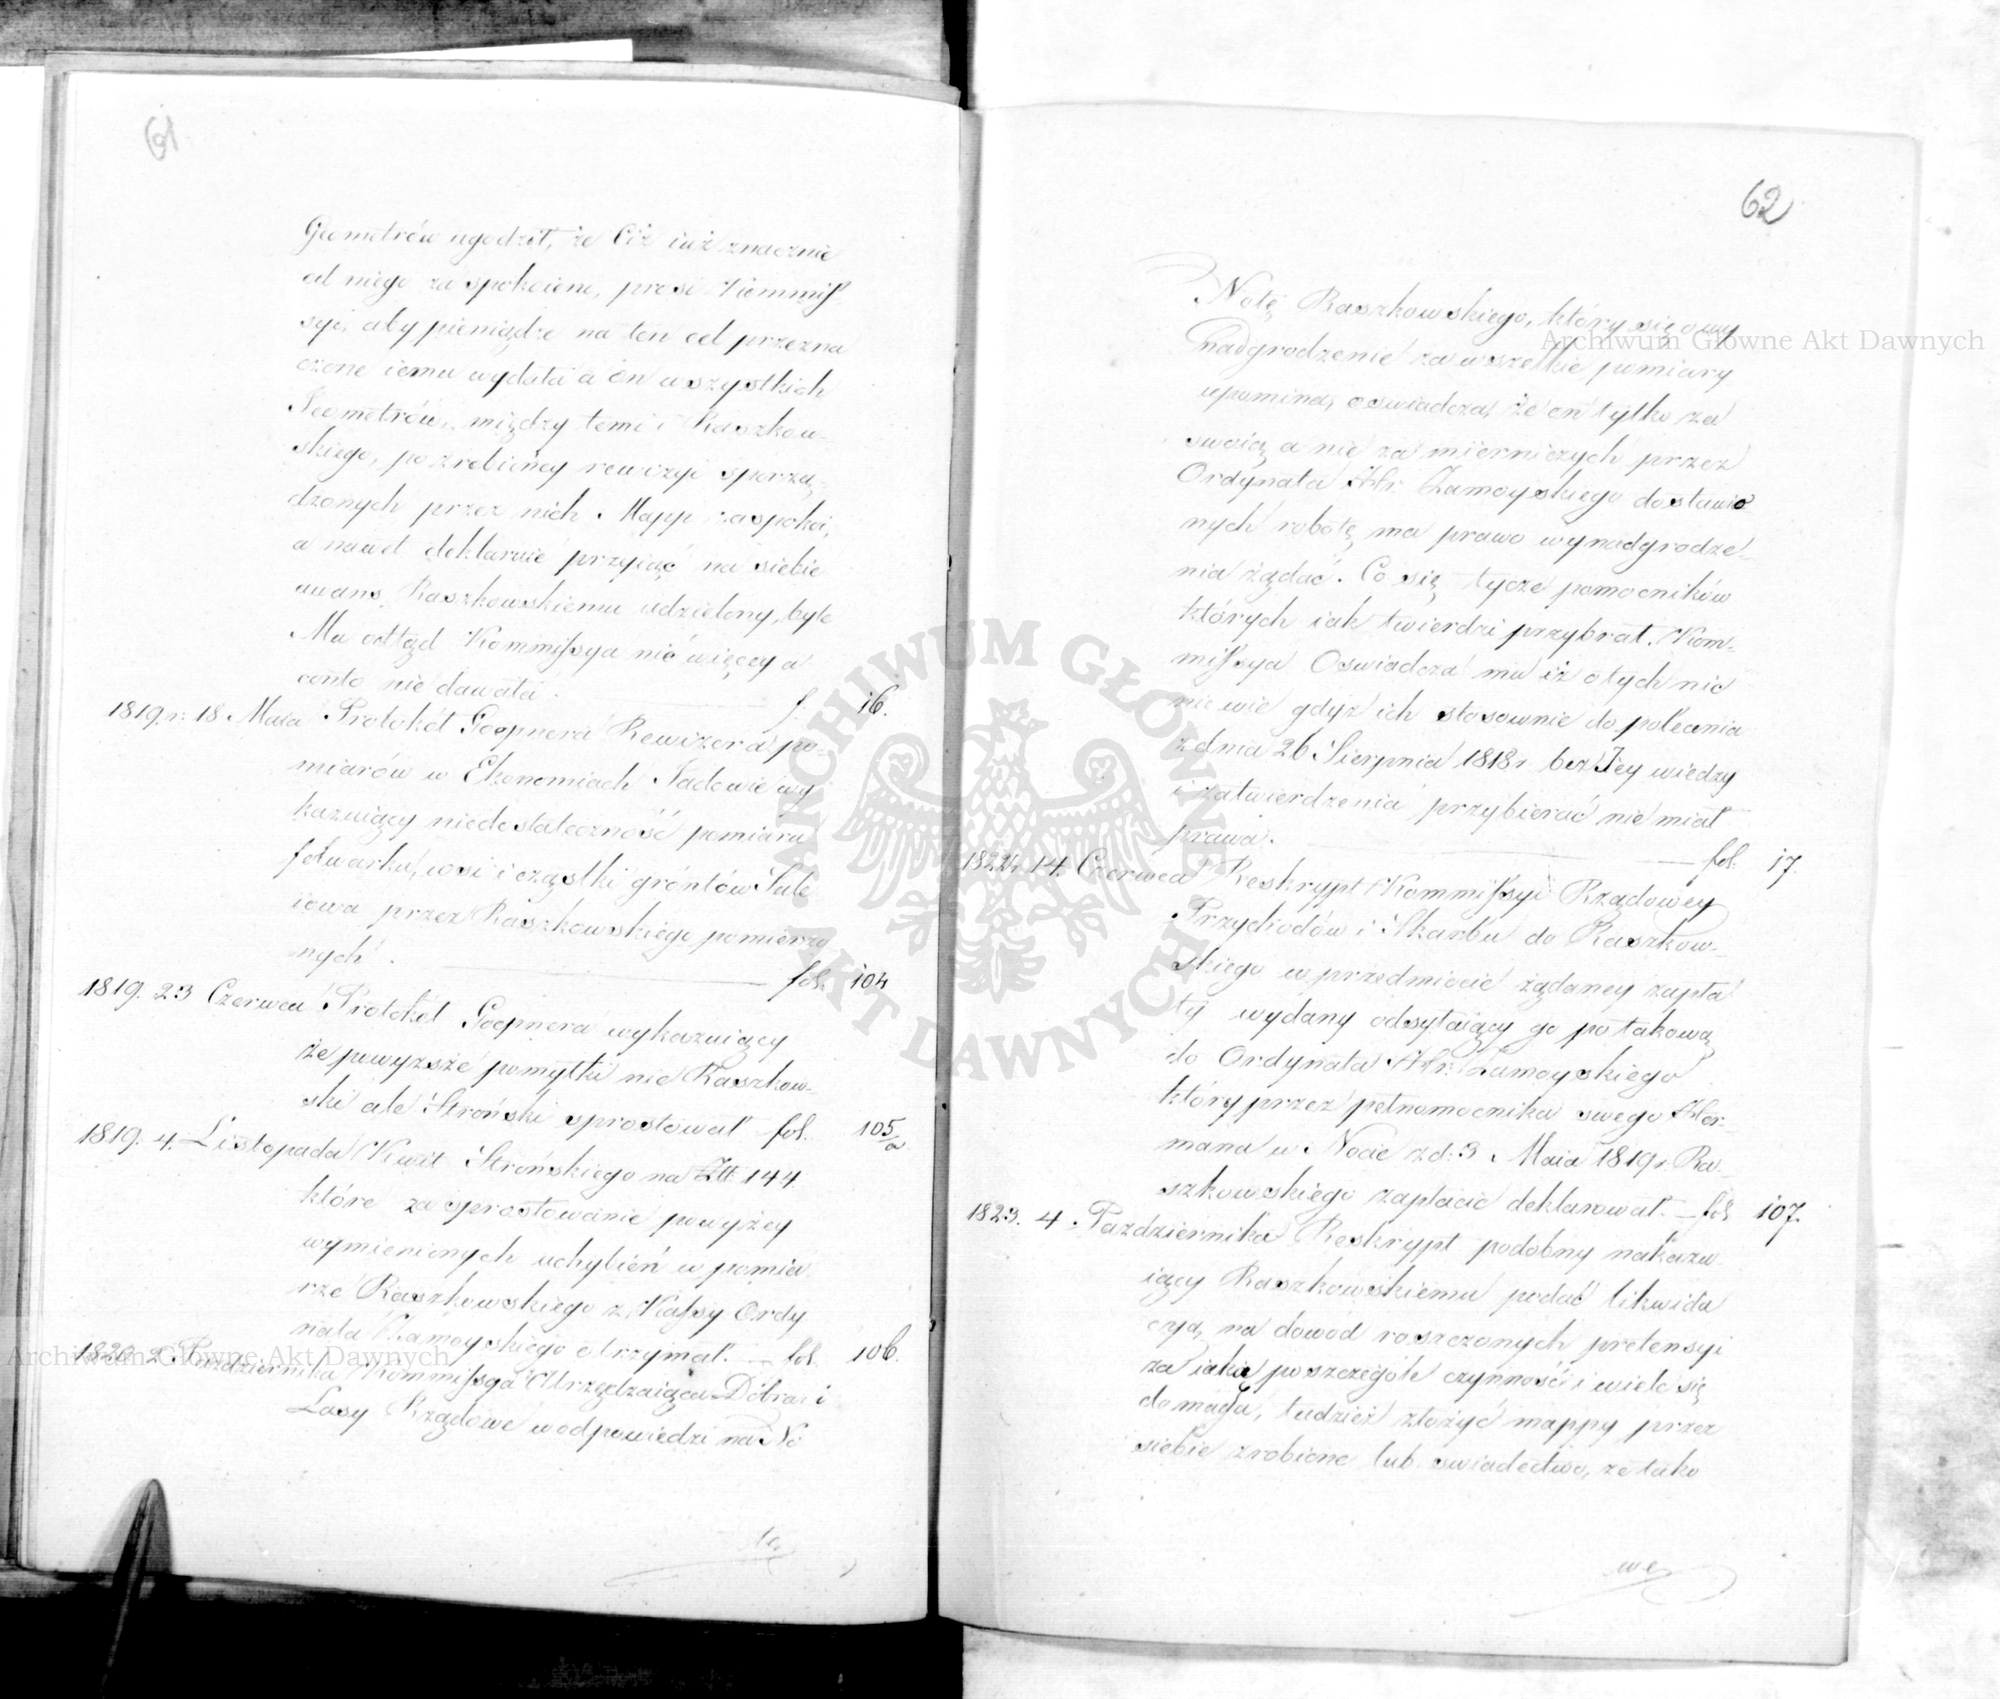 61
Geometrów ugodził, że Ciż iuż znacznie
od niego za spokoieni, prosi Kommiss
syi, aby pieniądze na ten cel przezna
czone iemu wydała a on wszystkich
Geometrów, między temi i Raszkow-
skiego, po zrobioney rewizyi sporzą-
dzonych przez nich Mapp zaspokoi,
a nawet deklaruie przyiąć na siebie
awans Raszkowskiemu udzielony, byle
Mu odtąd Kommissya nic więcey a
conto nie dawała. f. 16.
1819. r. 18 Maia Protokół Goepnera Rewizora po-
miarów w Ekonomiach Sadowie wy
kazuiący niedostateczność pomiaru
folwarku, wsi i cząstki gróntów Sule
iowa przez Raszkowskiego pomierzo
nych. fol. 104
1819. 23 Czerwca Protokół Goepnera wykazuiący
że powyższe pomyłki nie Raszkow-
ski ale Stroński sprostował fol. 105/a
1819. 4. Listopada Kwit Strońskiego na Ztt 144
które za sprostowanie powyżey
wymienionych uchybień w pomia
rze Raszkowskiego z Kassy Ordy
nata Zamoyskiego otrzymał. fol. 106.
1820 2 Pazdziernika Kommissya Urządzaiąca Dobra i
Lasy Rządowe w odpowiedzi na No
tę
62
Notę Raszkowskiego, który się o wy
nadgrodzenie za wszelkie pomiary
upomina, oswiadcza, że on tylko za
swoią a nie za mierniczych przez
Ordynata Hr. Zamoyskiego dostawio
nych robotę ma prawo wynadgrodze-
nia żądać. Co się tycze pomocników
których iak twierdzi przybrał, Kom-
missya Oswiadcza mu iż o tych nic
nie wie gdyż ich stosownie do polecenia
z dnia 26 Sierpnia 1818 r. bez Jey wiedzy
i zatwierdzenia przybierać nie miał
prawa. fol. 17.
1822 r. 14. Czerwca Reskrypt Kommissyi Rządowey
Przychodów i Skarbu do Raszkow-
skiego w przedmiocie żądaney zapła
ty wydany odsyłaiący go po takową
do Ordynata Hr. Zamoyskiego
który przez pełnomocnika swego Her-
mana w Nocie z d: 3 Maia 1819 r. Ra-
szkowskiego zapłacić deklarował. fol. 107.
1823. 4. Pazdziernika Reskrypt podobny nakazu
iący Raszkowskiemu podać likwida
cyą na dowód roszczonych pretensyi
za iaką poszczególe czynność i wiele się
domaga, tudzież złożyć mappy przez
siebie zrobione lub swiadectwo, że tako
we
ARCHIWUM GŁÓWNE AKT DAWNYCH
Archiwum Główne Akt Dawnych
Archiwum Główne Akt Dawnych